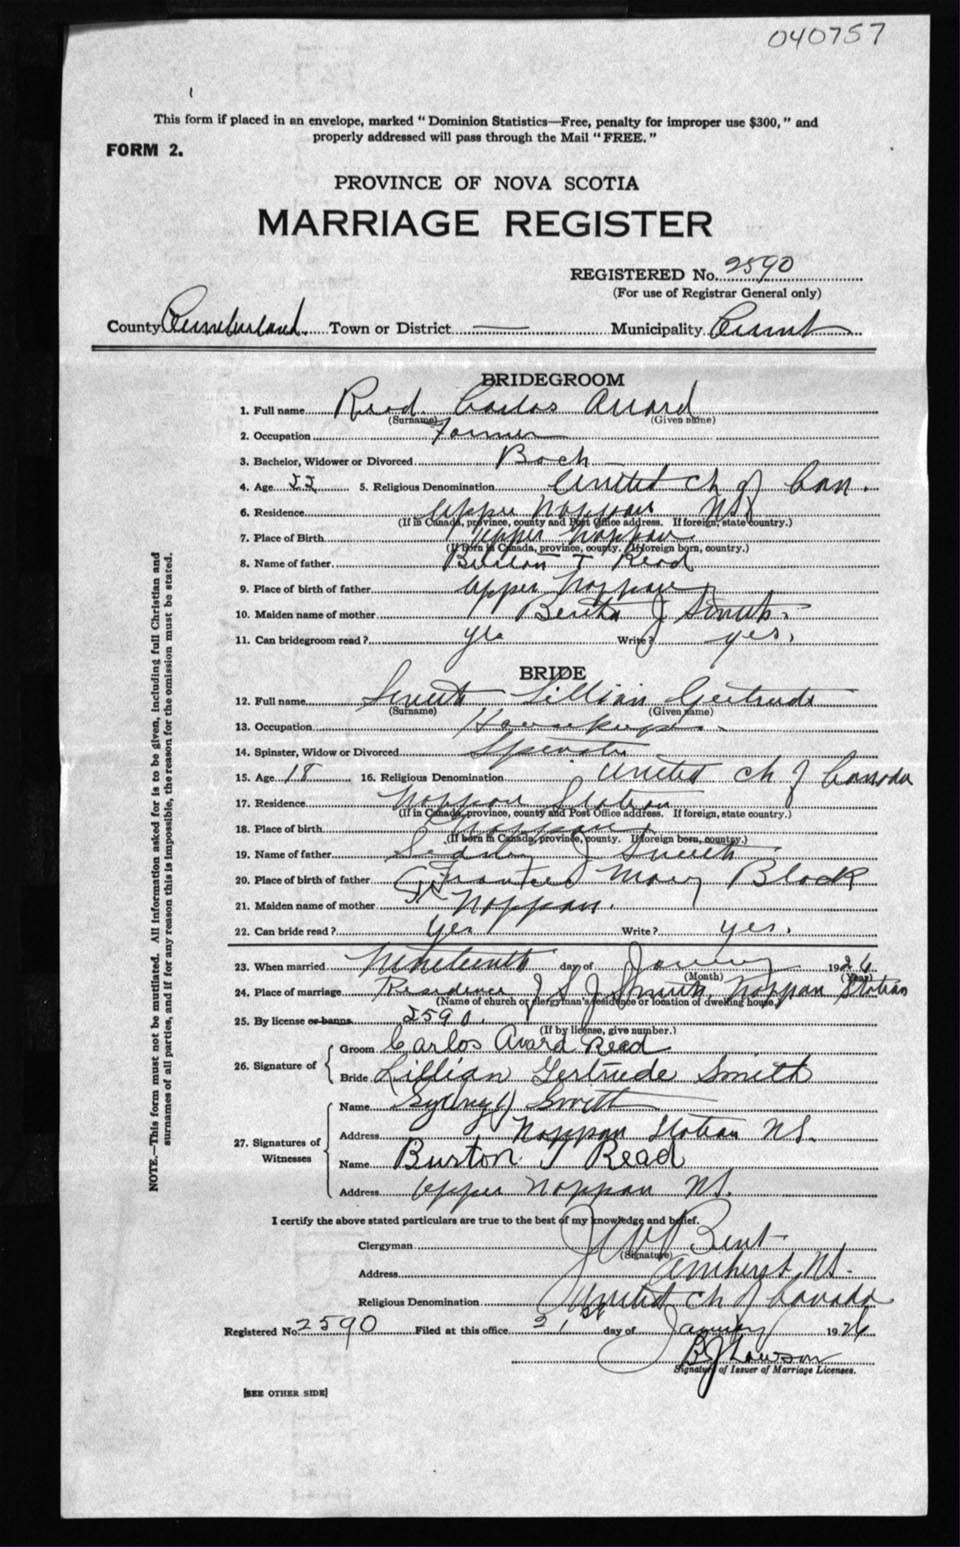 040757
This form if placed in an envelope, marked "Dominion Statistics—Free, penalty for improper use $300," and
properly addressed will pass through the Mail "FREE."
FORM 2.
PROVINCE OF NOVA SCOTIA
MARRIAGE REGISTER
REGISTERED No. 2590
(For use of Registrar General only)
County Cumberland Town or District — Municipality Cumb
BRIDEGROOM
1. Full name Read Carlos Avard
(Surname) (Given name)
2. Occupation Farmer
3. Bachelor, Widower or Divorced Bach
4. Age 22 5. Religious Denomination United Ch of Can.
6. Residence Upper Nappan NS
(If in Canada, province, county and Post Office address. If foreign, state country.)
7. Place of Birth Upper Nappan
(If born in Canada, province, county. If foreign born, country.)
8. Name of father Burton T Read
9. Place of birth of father Upper Nappan
10. Maiden name of mother Bertha J Smith
11. Can bridegroom read? yes Write? yes.
BRIDE
12. Full name Smith Lillian Gertrude
(Surname) (Given name)
13. Occupation Housekeeper
14. Spinster, Widow or Divorced Spinster
15. Age 18 16. Religious Denomination United Ch of Canada
17. Residence Nappan Station
(If in Canada, province, county and Post Office address. If foreign, state country.)
18. Place of birth Nappan
(If born in Canada, province, county. If foreign born, country.)
19. Name of father J Smith
20. Place of birth of father Frances Mary Black
21. Maiden name of mother Nappan.
22. Can bride read? Yes Write? yes.
23. When married Nineteenth day of January 1926
(Month) (Year)
24. Place of marriage Residence of S J Smith, Nappan Station
(Name of church or clergyman's residence or location of dwelling house.)
25. By license or banns 2590.
(If by license, give number.)
26. Signature of
Groom Carlos Avard Read
Bride Lillian Gertrude Smith
27. Signatures of Witnesses
Name Sydney J Smith
Address Nappan Station NS.
Name Burton T Read
Address Upper Nappan NS.
I certify the above stated particulars are true to the best of my knowledge and belief.
Clergyman Bent
(Signature)
Address Amherst, NS.
Religious Denomination United Ch of Canada
Registered No. 2590 Filed at this office 21st day of January 1926
BJ Lawson
Signature of Issuer of Marriage Licenses.
[SEE OTHER SIDE]
NOTE.—This form must not be mutilated. All information asked for is to be given, including full Christian and
surnames of all parties, and if for any reason this is impossible, the reason for the omission must be stated.